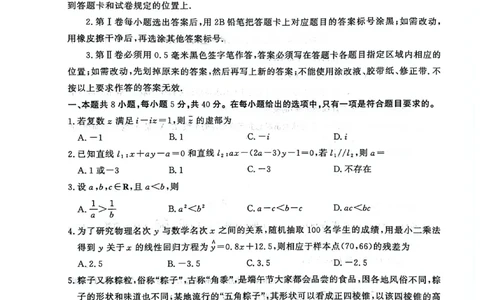 到答题卡和试卷规定的位置上.
2.第Ⅰ卷每小题选出答案后,用2B铅笔把答题卡上对应题目的答案标号涂黑;如需改动,
用橡皮擦干净后,再选涂其他答案标号.
3.第Ⅱ卷必须用0.5毫米黑色签字笔作答,答案必须写在答题卡各题目指定区域内相应的
位置;如需改动,先划掉原来的答案,然后再写上新的答案;不能使用涂改液、胶带纸、修正带.不
按以上要求作答的答案无效.
一、本题共8小题,每小题5分,共40分。在每小题给出的选项中,只有一项是符合题目要求的。
1.若复数z满足i-iz=1,则z̄的虚部为
A.-1 B.1 C.-i D.i
2.已知直线l₁:x+ay-a=0和直线l₂:ax-(2a-3)y-1=0,若l₁//l₂,则a=
A.1或-3 B.1 C.-3 D.不存在
3.设a,b,c∈R,且a<b,则
A.1/a>1/b B.a²<b² C.a-c<b-c D.ac<bc
4.为了研究物理名次y与数学名次x之间的关系,随机抽取100名学生的成绩,用最小二乘法
得到y关于x的线性回归方程为ŷ=0.8x+12.5,则相应于样本点(70,66)的残差为
A.2.5 B.-3.5 C.3.5 D.-2.5
5.粽子又称粽粒,俗称“粽子”,古称“角黍”,是端午节大家都会品尝的食品,因各地风俗不同,粽
子的形状和味道也不同,某地流行的“五角粽子”,其形状可以看成正四棱锥,以该四棱锥的高